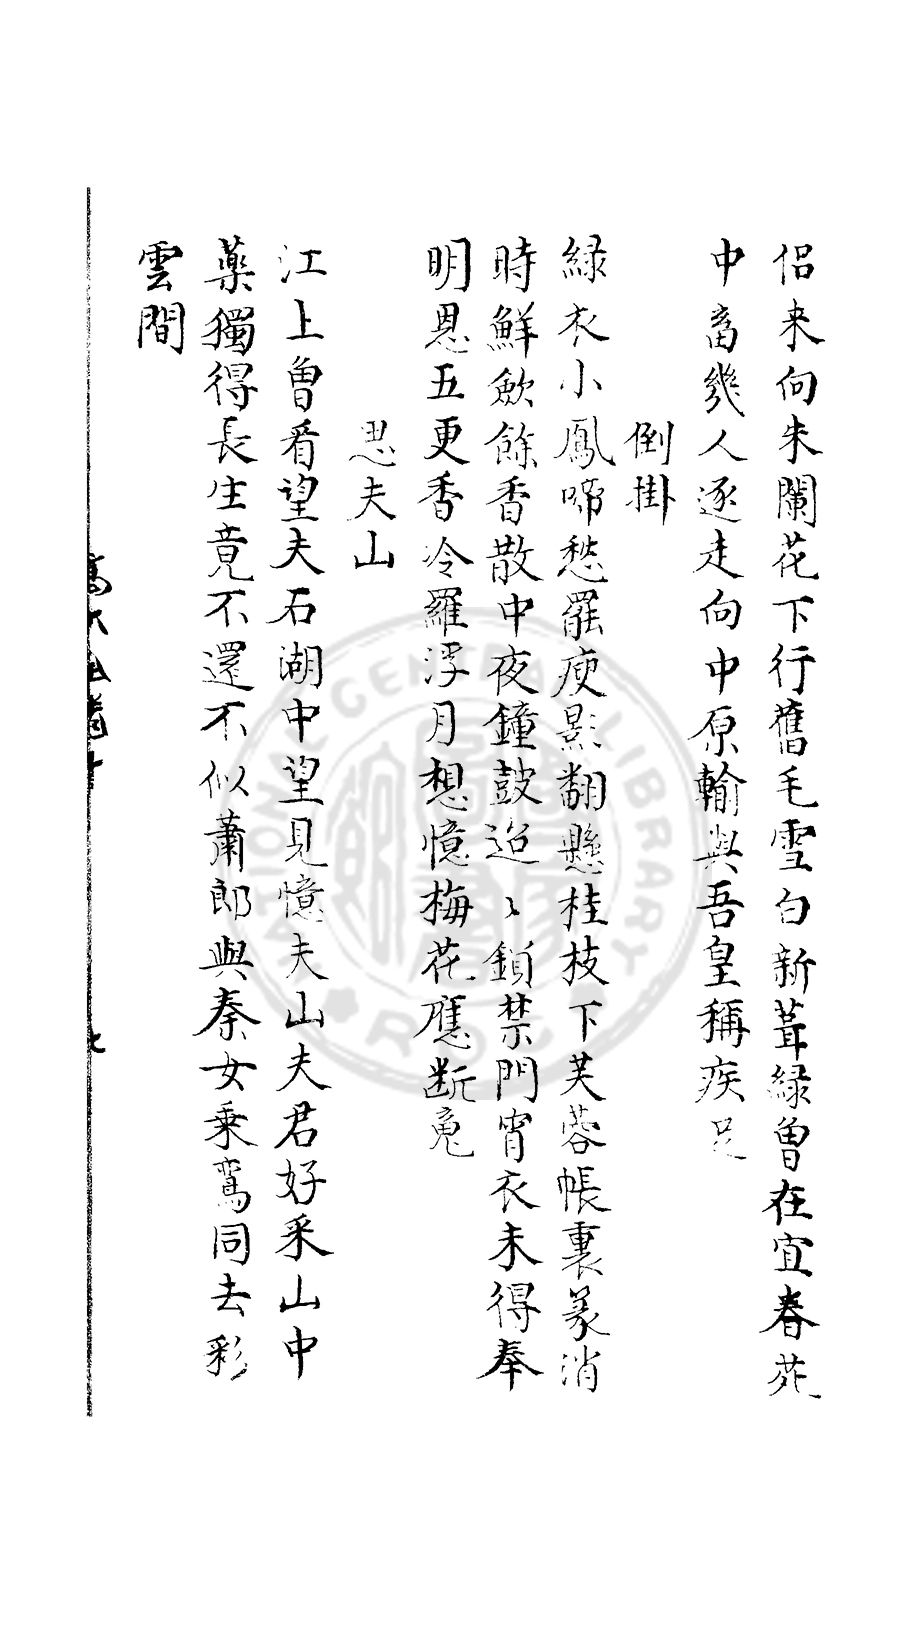 侣来向朱闌花下行舊毛雪白新葺緑曾在宜春苑
中畜幾人逐走向中原輸與吾皇稱疾足
倒掛
緑衣小鳳啼愁罷瘦影翻懸桂枝下芙蓉帳裏篆消
時鮮歛餘香散中夜鐘鼓迢〻鎖禁門宵衣未得奉
明恩五更香冷羅浮月想憶梅花應断䰟
思夫山
江上曾看望夫石湖中望見憶夫山夫君好采山中
藥獨得長生竟不還不似蕭郎與秦女乗鸞同去彩
雲間
NATIONAL CENTRAL LIBRARY
R.O.C.